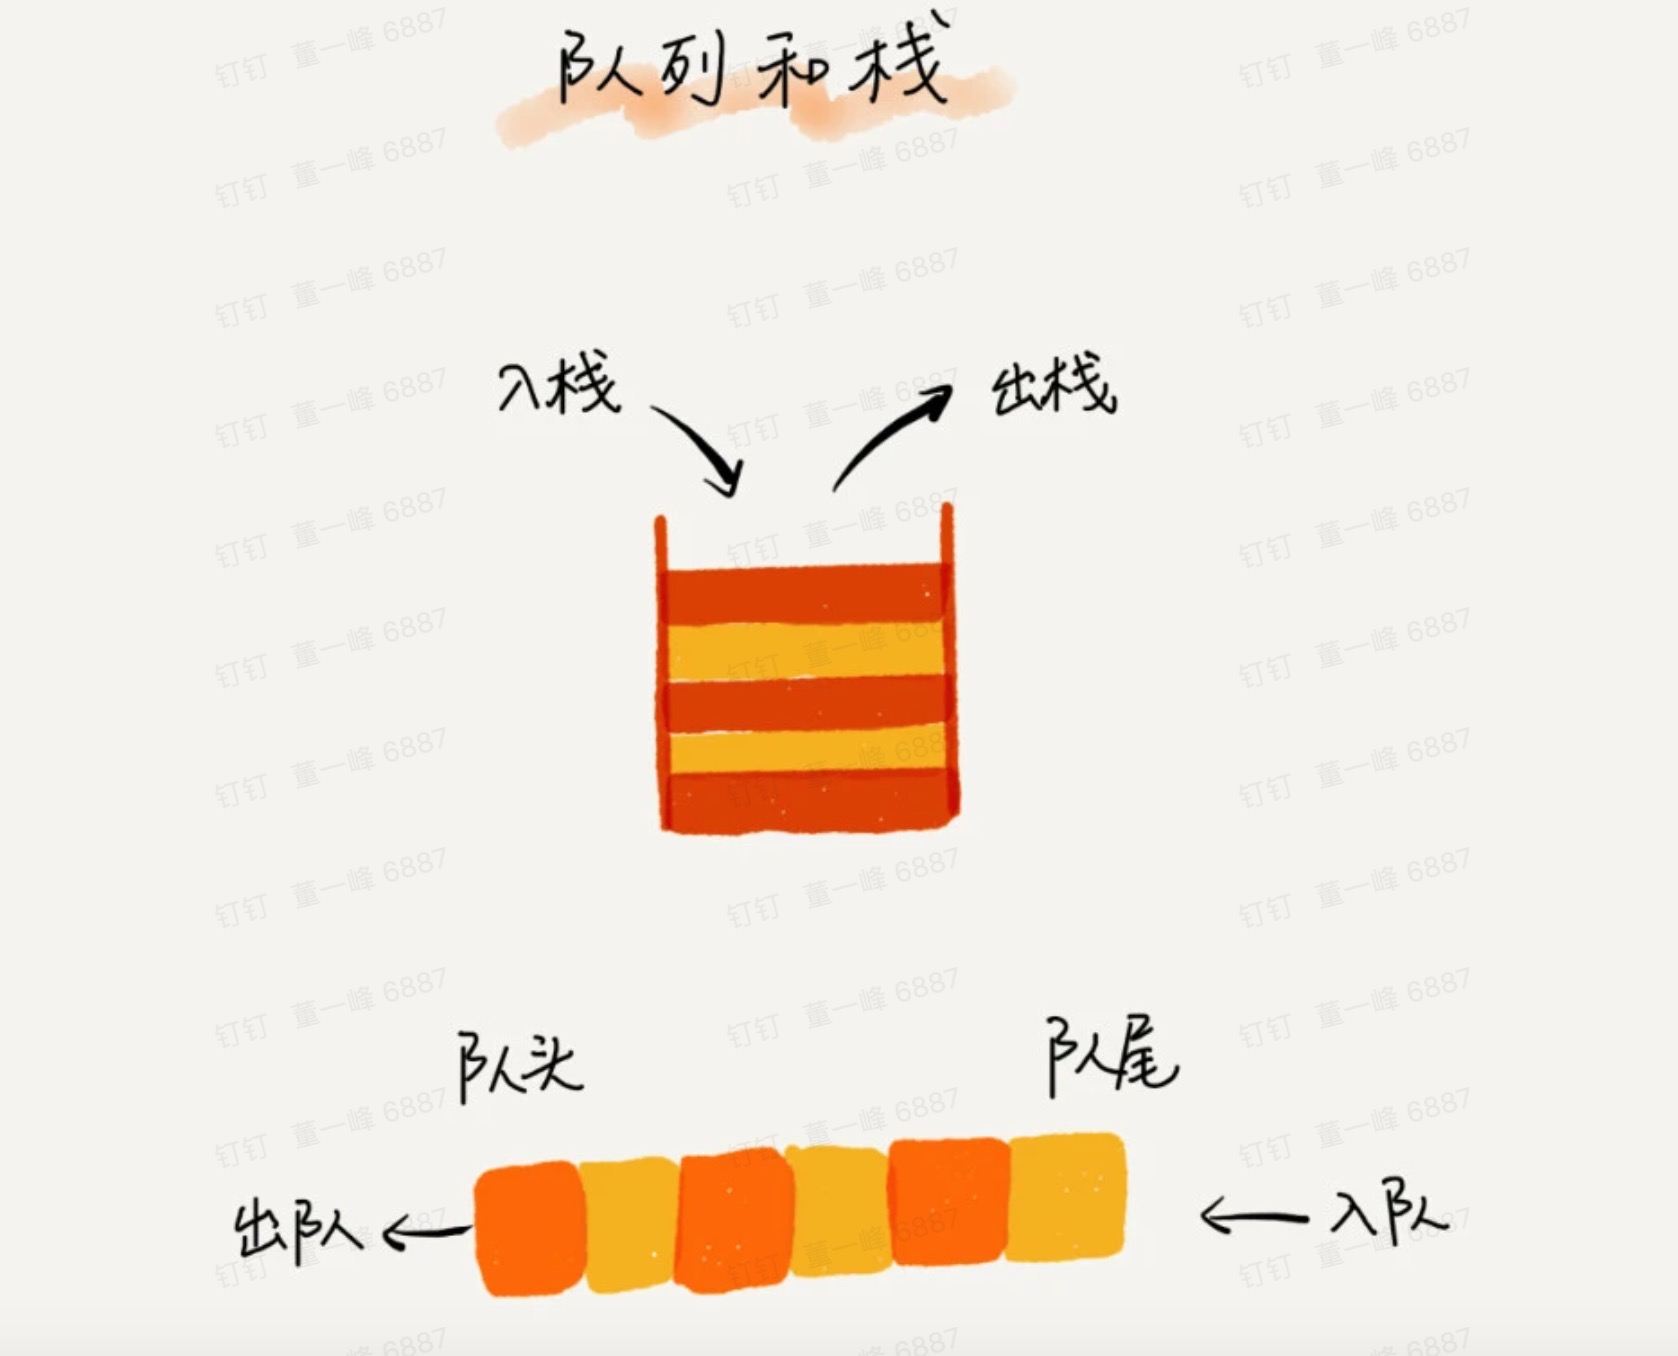 队列和栈
入栈 出栈
队头 队尾
出队 入队
钉钉 董一峰 6887